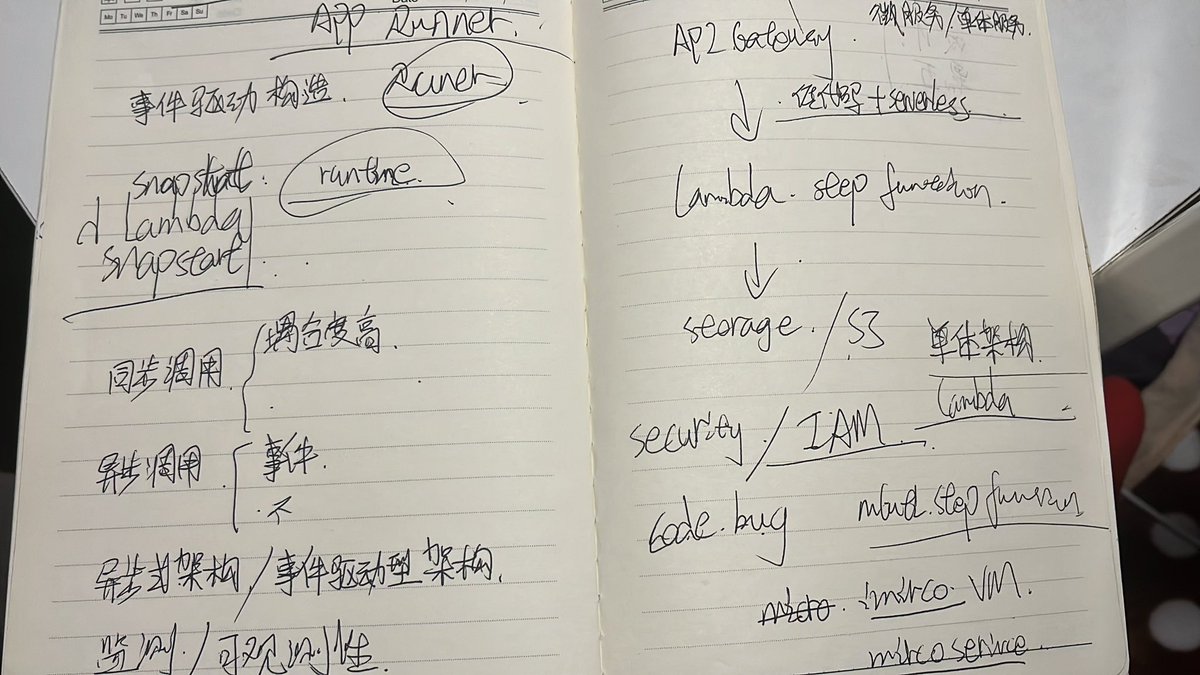 Mo Tu We Th Fr Sa Su
APP Runner.
事件驱动构造. Runer
snapshatt. runtime.
Lambda
snapstart
同步调用 耦合度高.
异步调用 事件.
不
异步式架构/事件驱动型架构.
监测/可观测性
微服务/单体服务.
API Gateway.
低代码+serverless.
Lambda. step function.
storage./S3
单体架构.
Lambda
security/IAM.
code.bug
step function
micro. mirco VM.
mirco serince